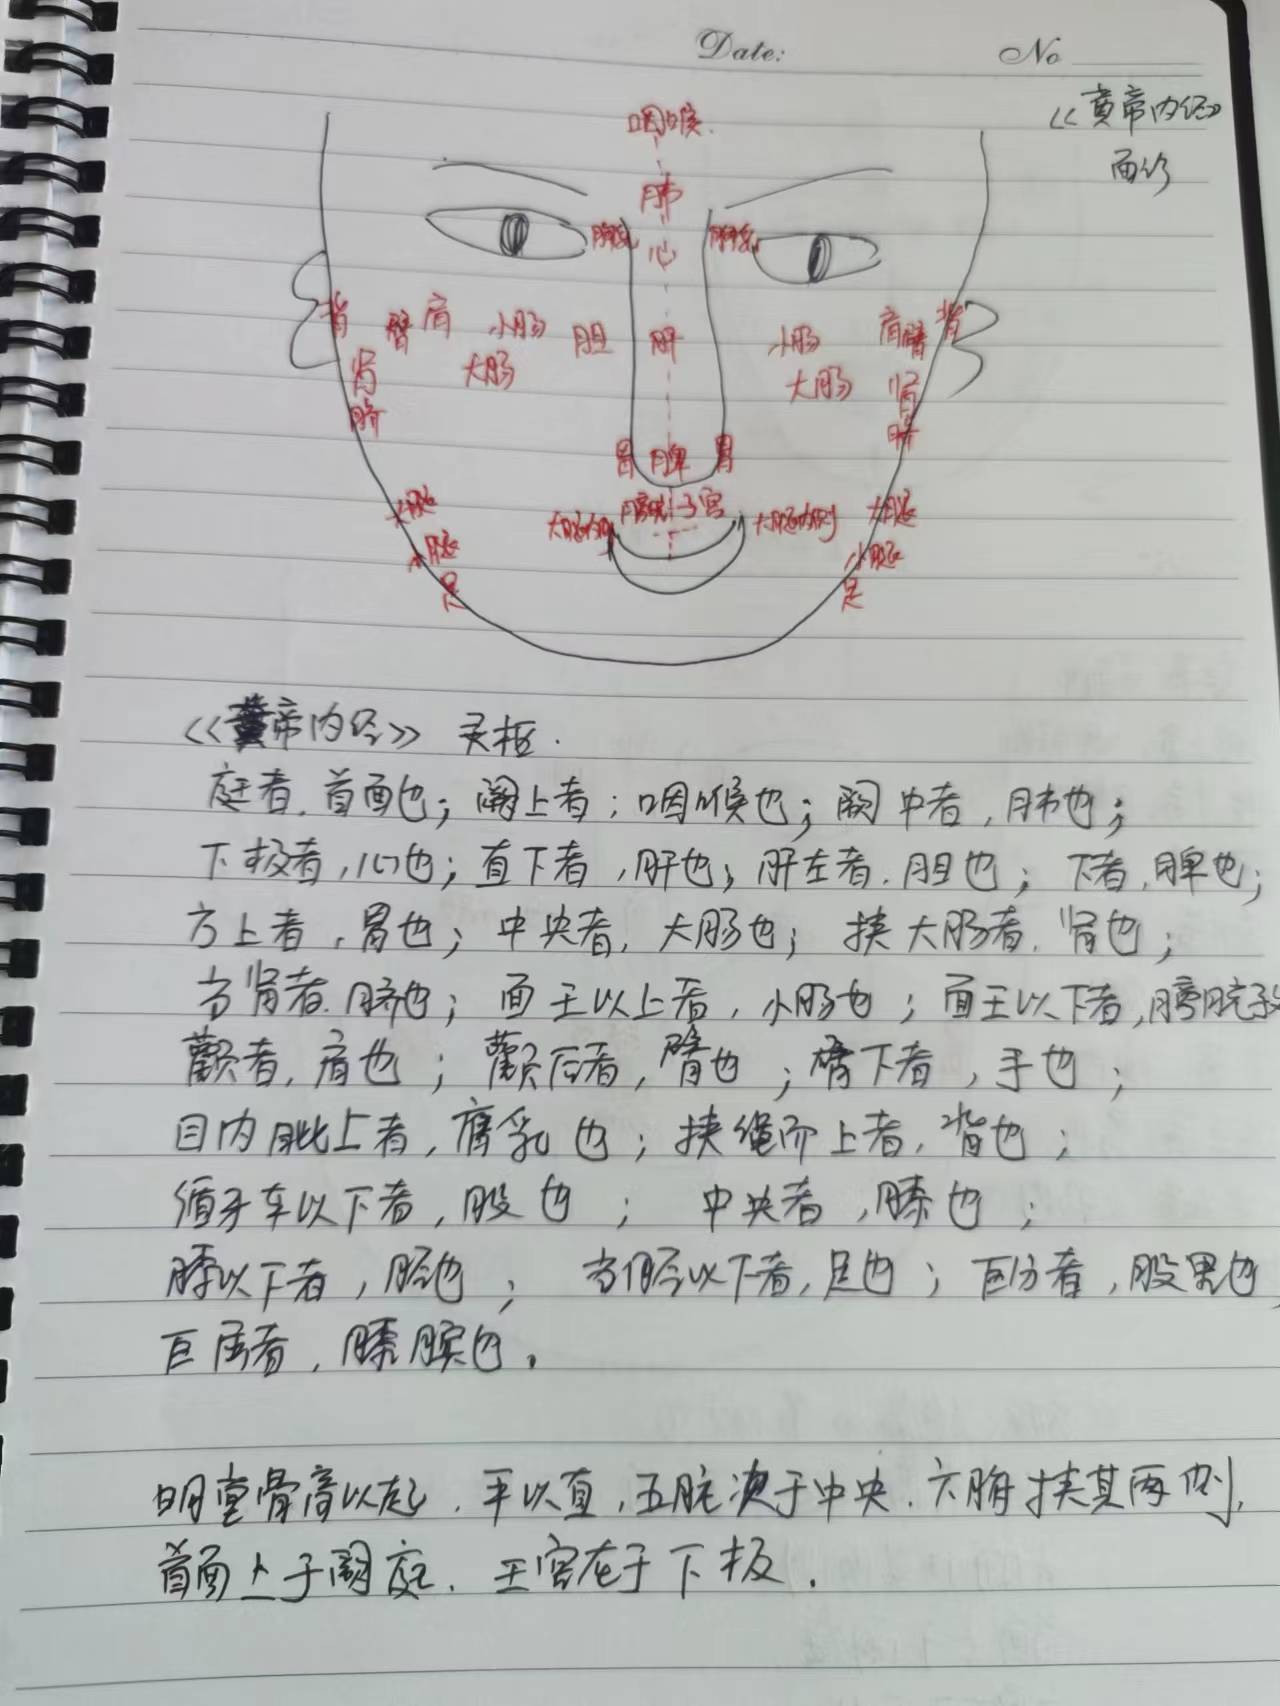 Date: No
《黄帝内经》
面诊
咽喉
肺
膺乳 心 膺乳
背 臂 肩 小肠 胆 肝 小肠 肩 臂 背
肾 大肠 大肠 肾
脐 脐
胃 脾 胃
大腿 大腿内侧 膀胱子宫 大腿内侧 大腿
小腿 小腿
足 足
《黄帝内经》灵枢.
庭者,首面也;阙上者;咽喉也;阙中者,肺也;
下极者,心也;直下者,肝也;肝左者,胆也;下者,脾也;
方上者,胃也;中央者,大肠也;挟大肠者,肾也;
当肾者.脐也;面王以上者,小肠也;面王以下者,膀胱子
颧者,肩也;颧后者,臂也;臂下者,手也;
目内眦上者,膺乳也;挟绳而上者,背也;
循牙车以下者,股也;中央者,膝也;
膝以下者,胫也;当胫以下者,足也;巨分者,股里也
巨屈者,膝膑也。
明堂骨高以起,平以直,五脏次于中央,六腑挟其两侧,
首面上于阙庭,王宫在于下极.